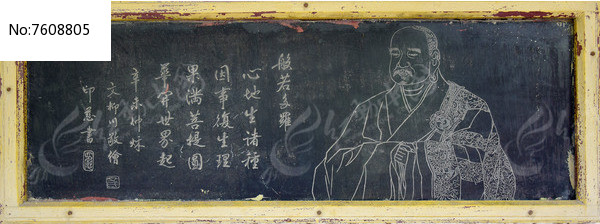 No:7608805
般若多羅
心地生諸種
因事復生理
果滿菩提圓
華開世界起
辛未仲秋
文柳川敬繪
印慧書